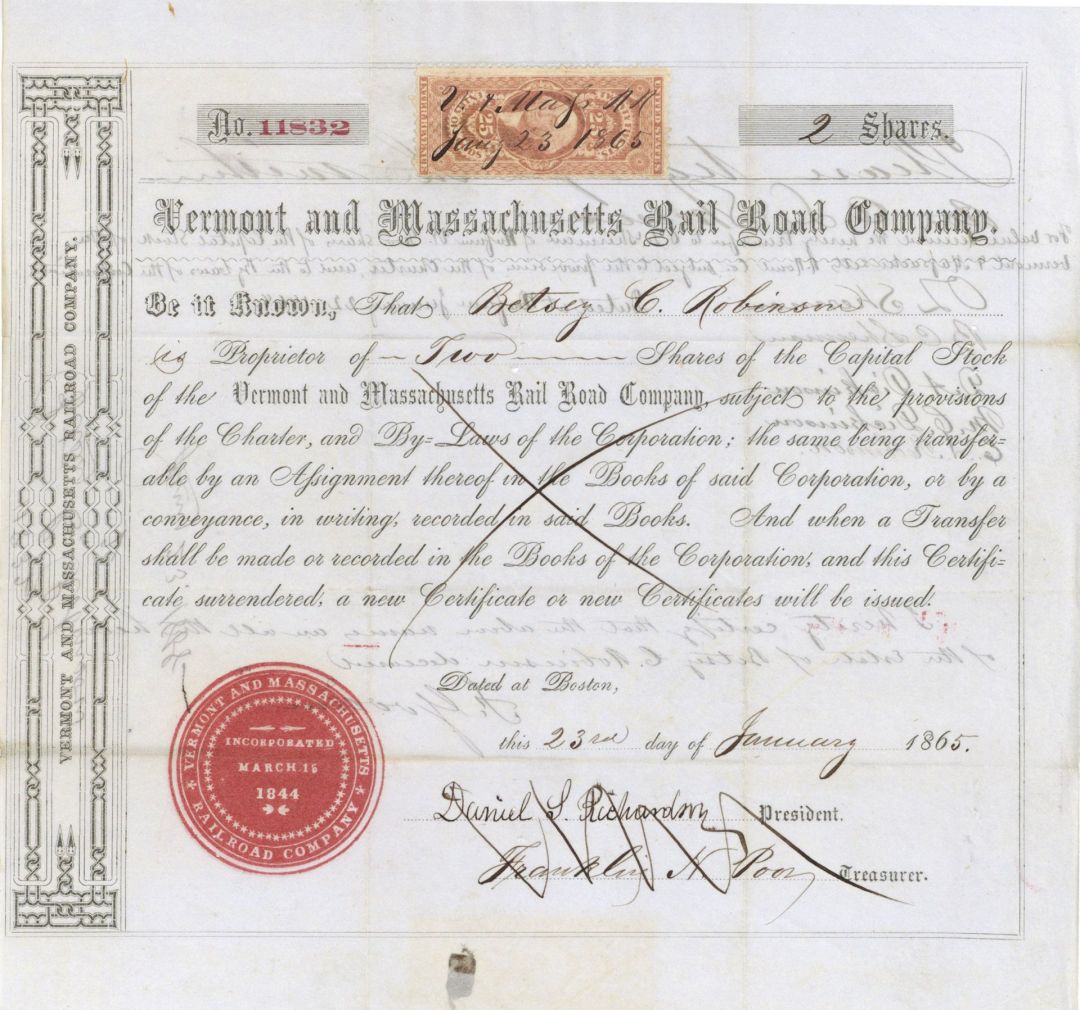 No. 11832
V. & Mass RR
Jany 23 1865
25 25
2 Shares.
Vermont and Massachusetts Rail Road Company.
Be it Known, That Betsey C. Robinson
is Proprietor of Two Shares of the Capital Stock
of the Vermont and Massachusetts Rail Road Company, subject to the provisions
of the Charter, and By-Laws of the Corporation; the same being transfer-
able by an Assignment thereof in the Books of said Corporation, or by a
conveyance, in writing, recorded in said Books. And when a Transfer
shall be made or recorded in the Books of the Corporation, and this Certifi-
cate surrendered, a new Certificate or new Certificates will be issued.
Dated at Boston,
this 23rd day of January 1865.
Daniel S. Richardson President.
Franklin N. Poor Treasurer.
VERMONT AND MASSACHUSETTS RAILROAD COMPANY.
VERMONT AND MASSACHUSETTS
RAILROAD COMPANY
INCORPORATED
MARCH. 15
1844